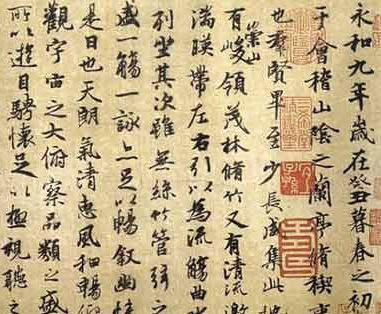 永和九年歲在癸丑暮春之初
于會稽山陰之蘭亭脩稧事
也羣賢畢至少長咸集此地
有崇山峻領茂林脩竹又有清流激
湍暎帶左右引以為流觴曲水
列坐其次雖無絲竹管弦之
盛一觴一詠亦足以暢敘幽情
是日也天朗氣清惠風和暢仰
觀宇宙之大俯察品類之盛
所以遊目騁懷足以極視聽之